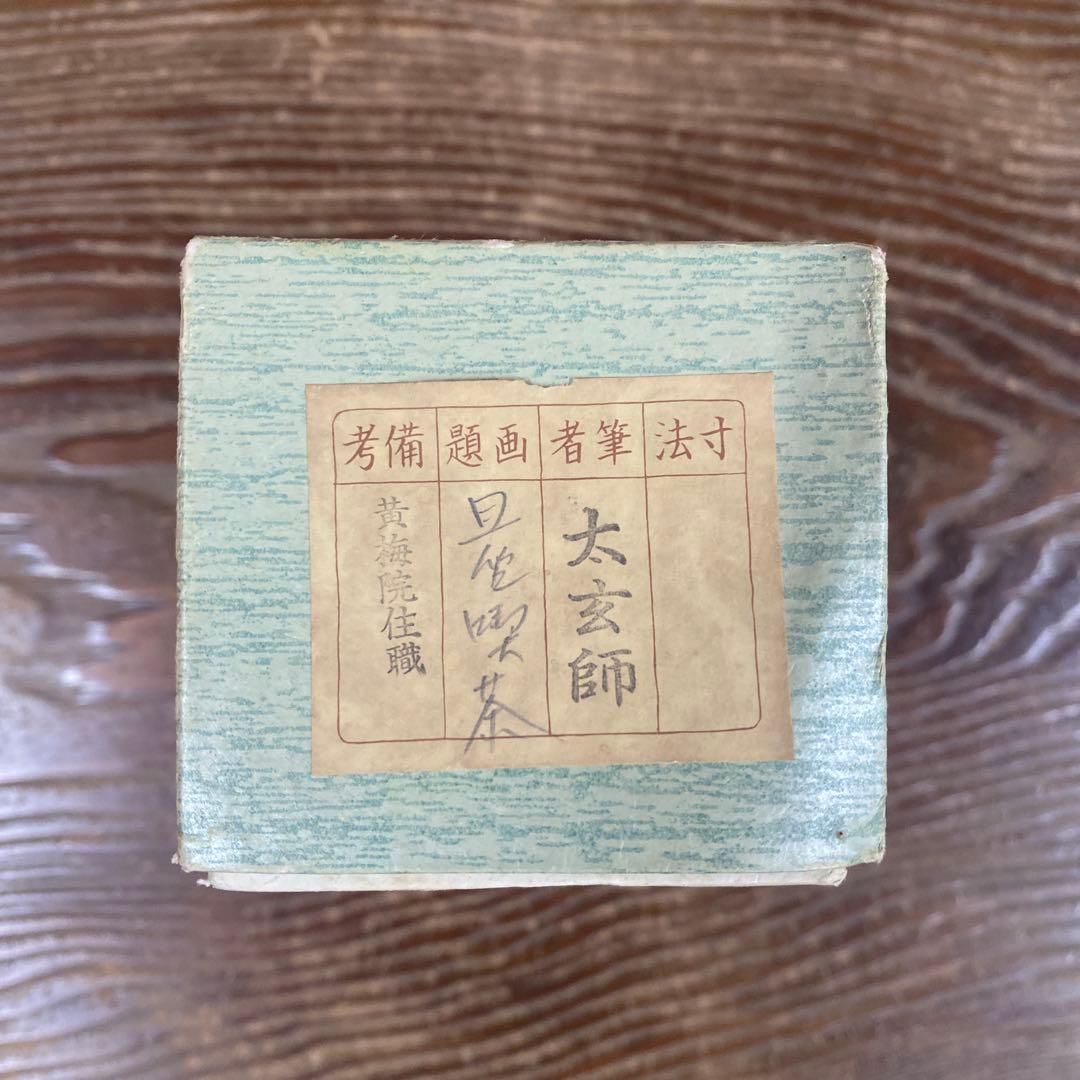 寸法
筆者
太玄師
画題
且坐喫茶
備考
黄梅院住職